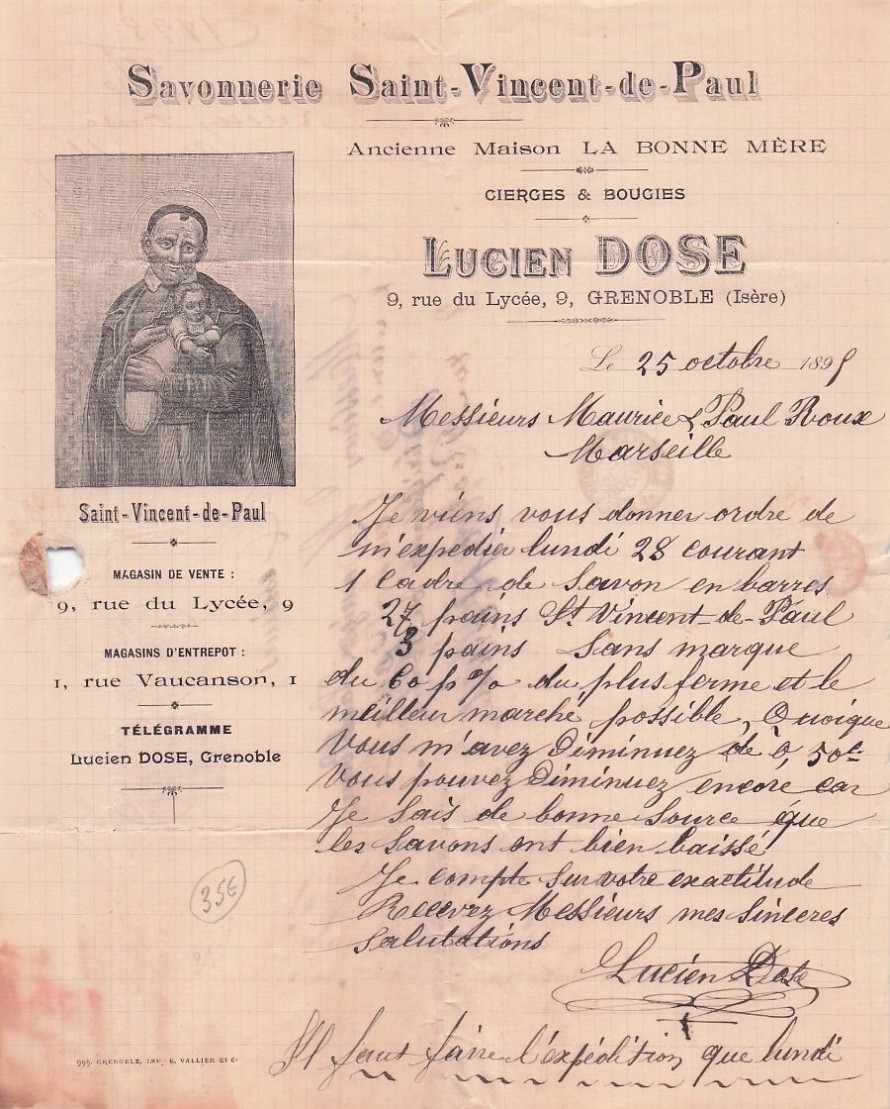 Savonnerie Saint-Vincent-de-Paul
Ancienne Maison LA BONNE MÈRE
CIERGES & BOUGIES
LUCIEN DOSE
9, rue du Lycée, 9, GRENOBLE (Isère)
Le 25 octobre 1895
Messieurs Maurice & Paul Roux
Marseille
Saint-Vincent-de-Paul
MAGASIN DE VENTE :
9, rue du Lycée, 9
MAGASINS D'ENTREPOT :
1, rue Vaucanson, 1
TÉLÉGRAMME
Lucien DOSE, Grenoble
Je viens vous donner ordre de
m'expedier lundi 28 courant
1 Cadre de Savon en barres
27 pains St Vincent-de-Paul
3 pains sans marque
du 60 p% du plus ferme et le
meilleur marché possible, Quoique
Vous m'avez Diminuez de 0,50c
Vous pouvez Diminuez encore car
Je Sais de bonne Source que
les Savons ont bien baissé
Je compte sur votre exactitude
Recevez Messieurs mes Sinceres
Salutations
Lucien Dose
Il faut faire l'expédition que lundi
35€
995. GRENOBLE, IMP. E. VALLIER ET Cie